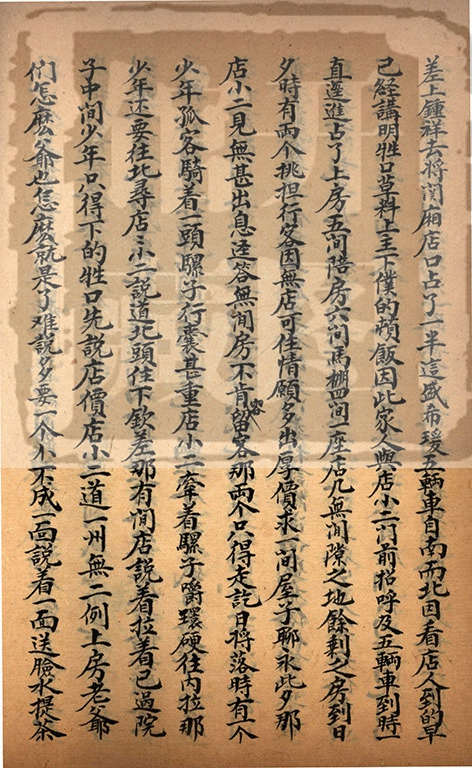 差上鍾祥去將閑廂店口占了一半這盛希瑗五輛車自南而北因看店人到的早
已經講明牲口草料上主下僕的頓飯因此家人與店小二門前招呼及五輛車到時一
直邃進占了上房五間陪房六間馬棚四間一座店凡無閒隙之地餘剩之房到日
夕時有兩个挑担行客因無店可住情願多出厚價求一間屋子聊永此夕那
店小二見無甚出息送答無閒房不肯留客那兩个只得走訖日将落時有一个
少年孤客騎着一頭騾子行囊甚重店小二牽着騾子嚼環硬往内拉那
少年还要往北尋店小二説道北頭住下欽差那有閒店説着拉着已過院
子中间少年只得下的牲口先説店價店小二道一州無二例上房老爺
们怎麽爷也怎麽就是了难説多要一个小不成一面説着一面送臉水提茶